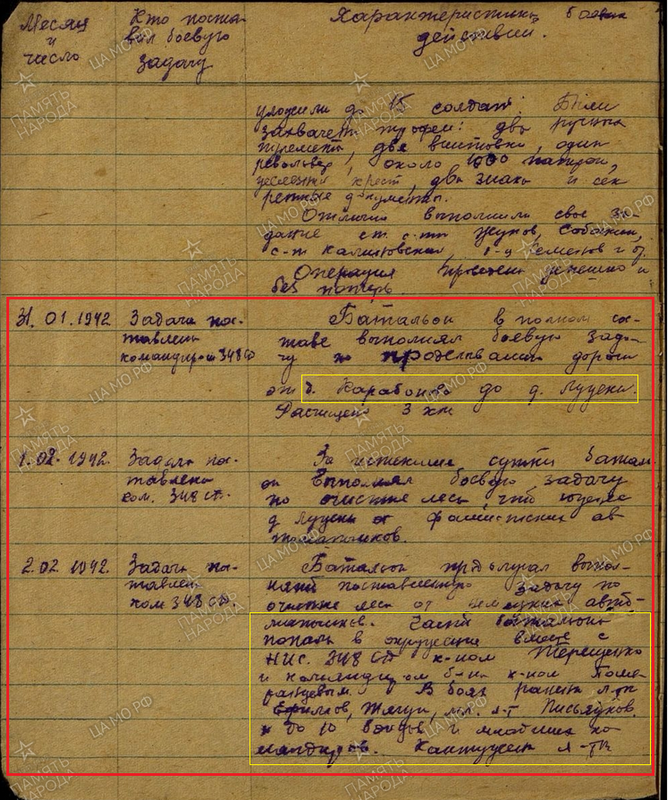 Месяц и число
Кто поста-
вил боевую
задачу
Характеристика боевых
действий.
уложили до 15 солдат. Были
захвачены трофеи: два ручных
пулемета, две винтовки, один
револьвер, около 1000 патрон,
железный крест, два знака и сек
ретные документы.
Отлично выполнили свое за-
дание ст. с-т Жуков, Собакин,
с-т Калиновский, и др.
Операция проведена успешно и
без потерь
31.01.1942
Задача пос-
тавлена
командиром 348 сд
Батальон в полном со-
ставе выполнял боевую зада-
чу по проделыванию дороги
от д. Карабоново до д. Луцени.
Расчищено 3 км
1.02.1942.
Задача пос-
тавлена
ком. 348 сд.
За истекшие сутки батальон
выполнял боевую задачу
по очистке леса, что
д. Луцени от фашистских ав
томатчиков.
2.02.1942.
Задача по-
ставлен
ком 348 сд.
Батальон продолжал выпол-
нять поставленную задачу по
очистке леса от немецких авто
матчиков. Часть батальона
попала в окружение вместе с
НИС. 348 сд к-ном Терещенко
и командиром б-на к-ном Поме
ранцевым. В боях ранены л-ты
Ефимов, мл. л-т Письменков.
и до 10 бойцов и младших ко
мандиров. Контужен л-т
ПАМЯТЬ НАРОДА
ЦАМО.РФ